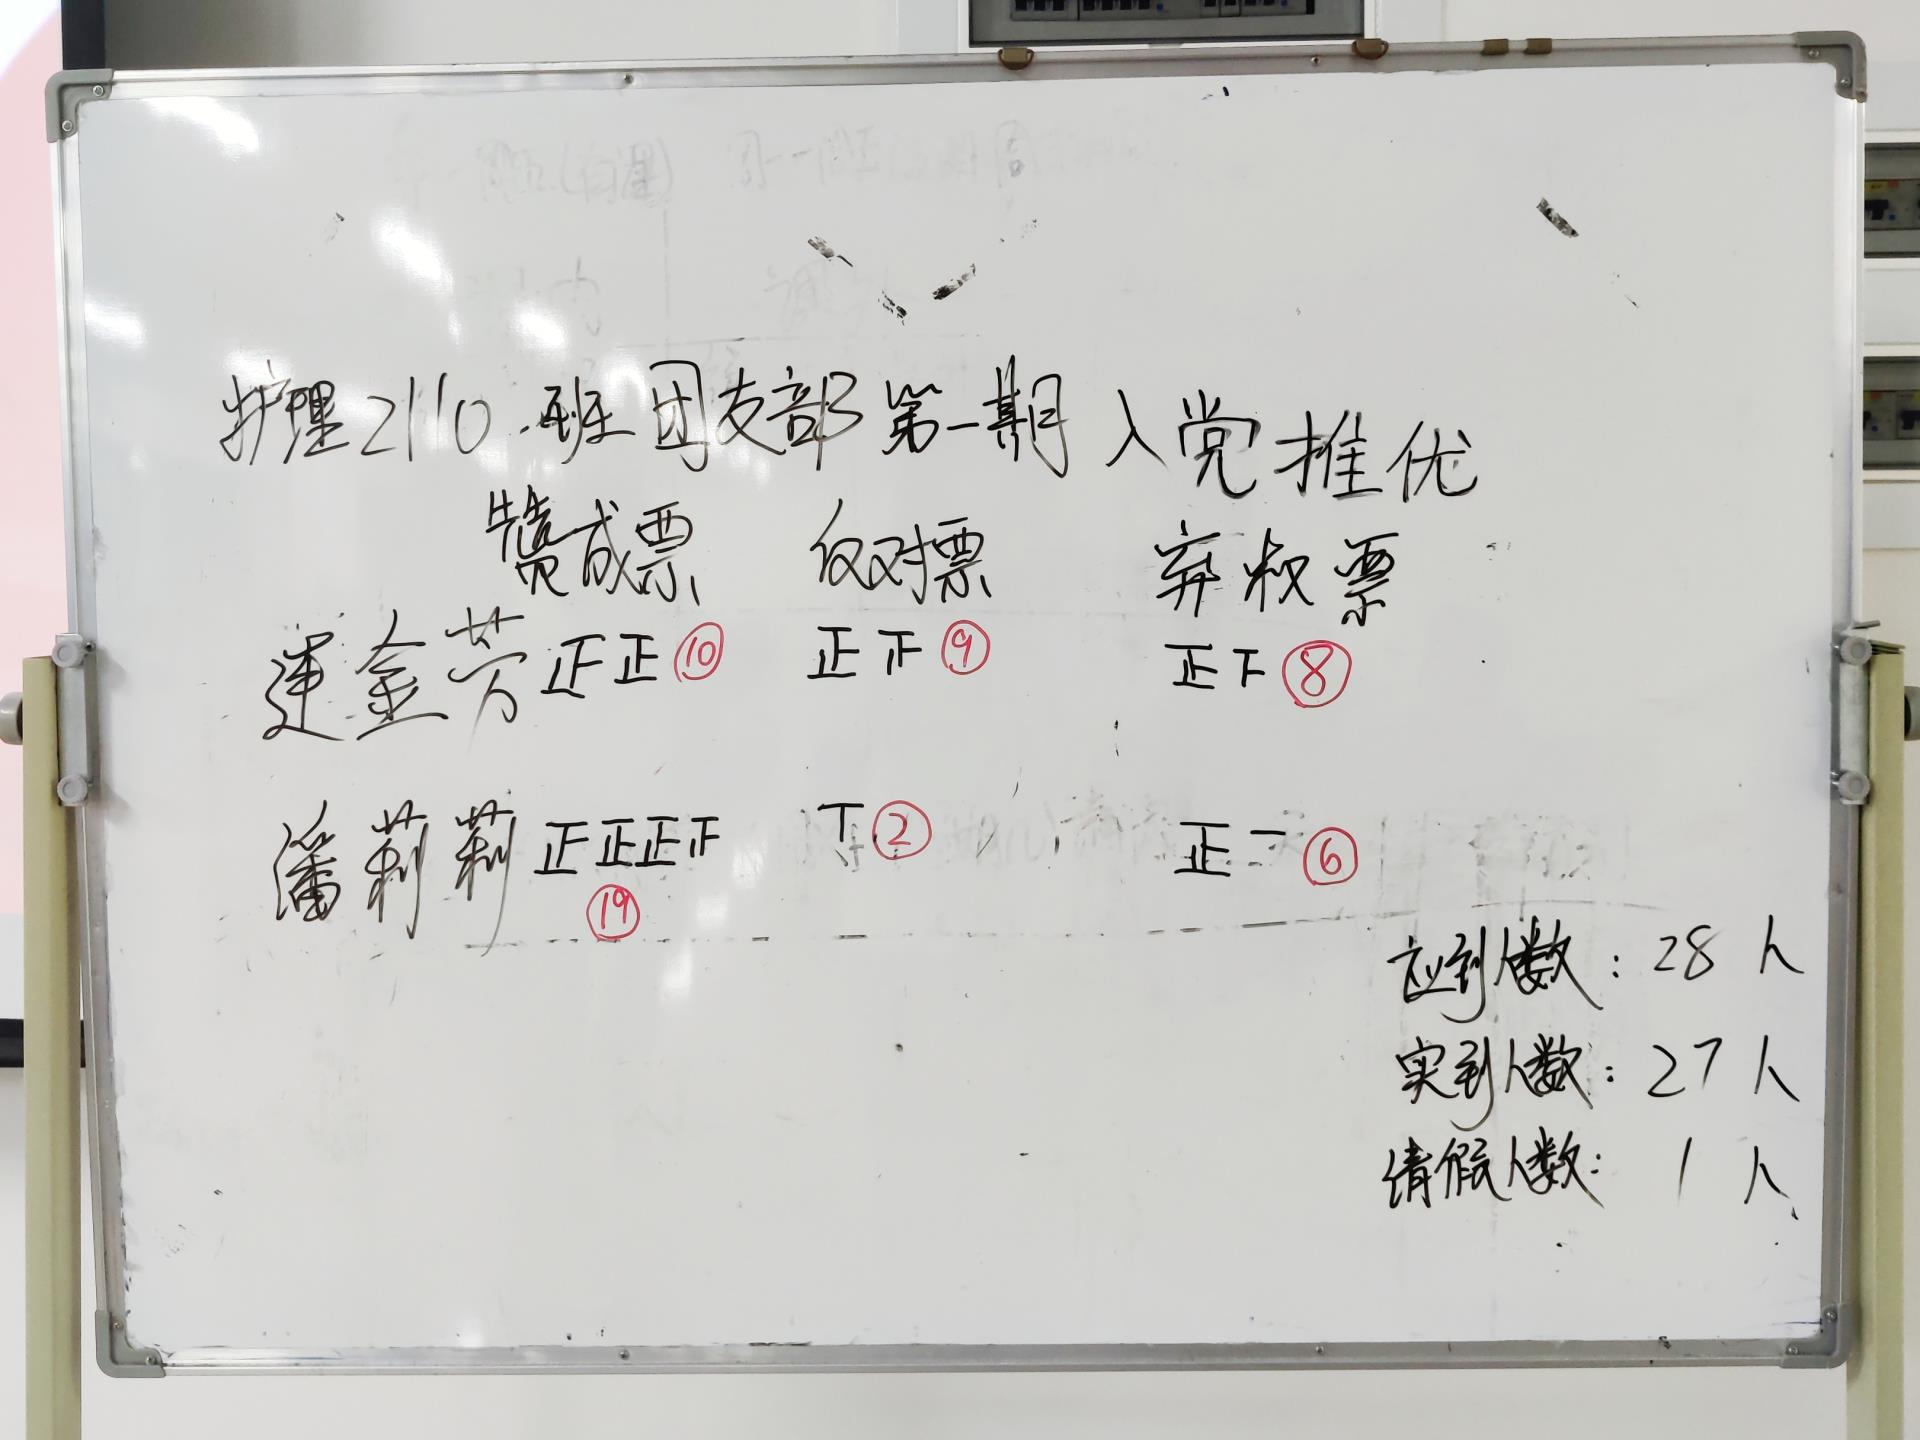 护理2110班团支部第一期入党推优
赞成票 反对票 弃权票
连金芳 正正 ⑩ 正𤴓 ⑨ 正下 ⑧
潘莉莉 正正正𤴓 ⑲ 丅 ② 正一 ⑥
应到人数：28人
实到人数：27人
请假人数：1人